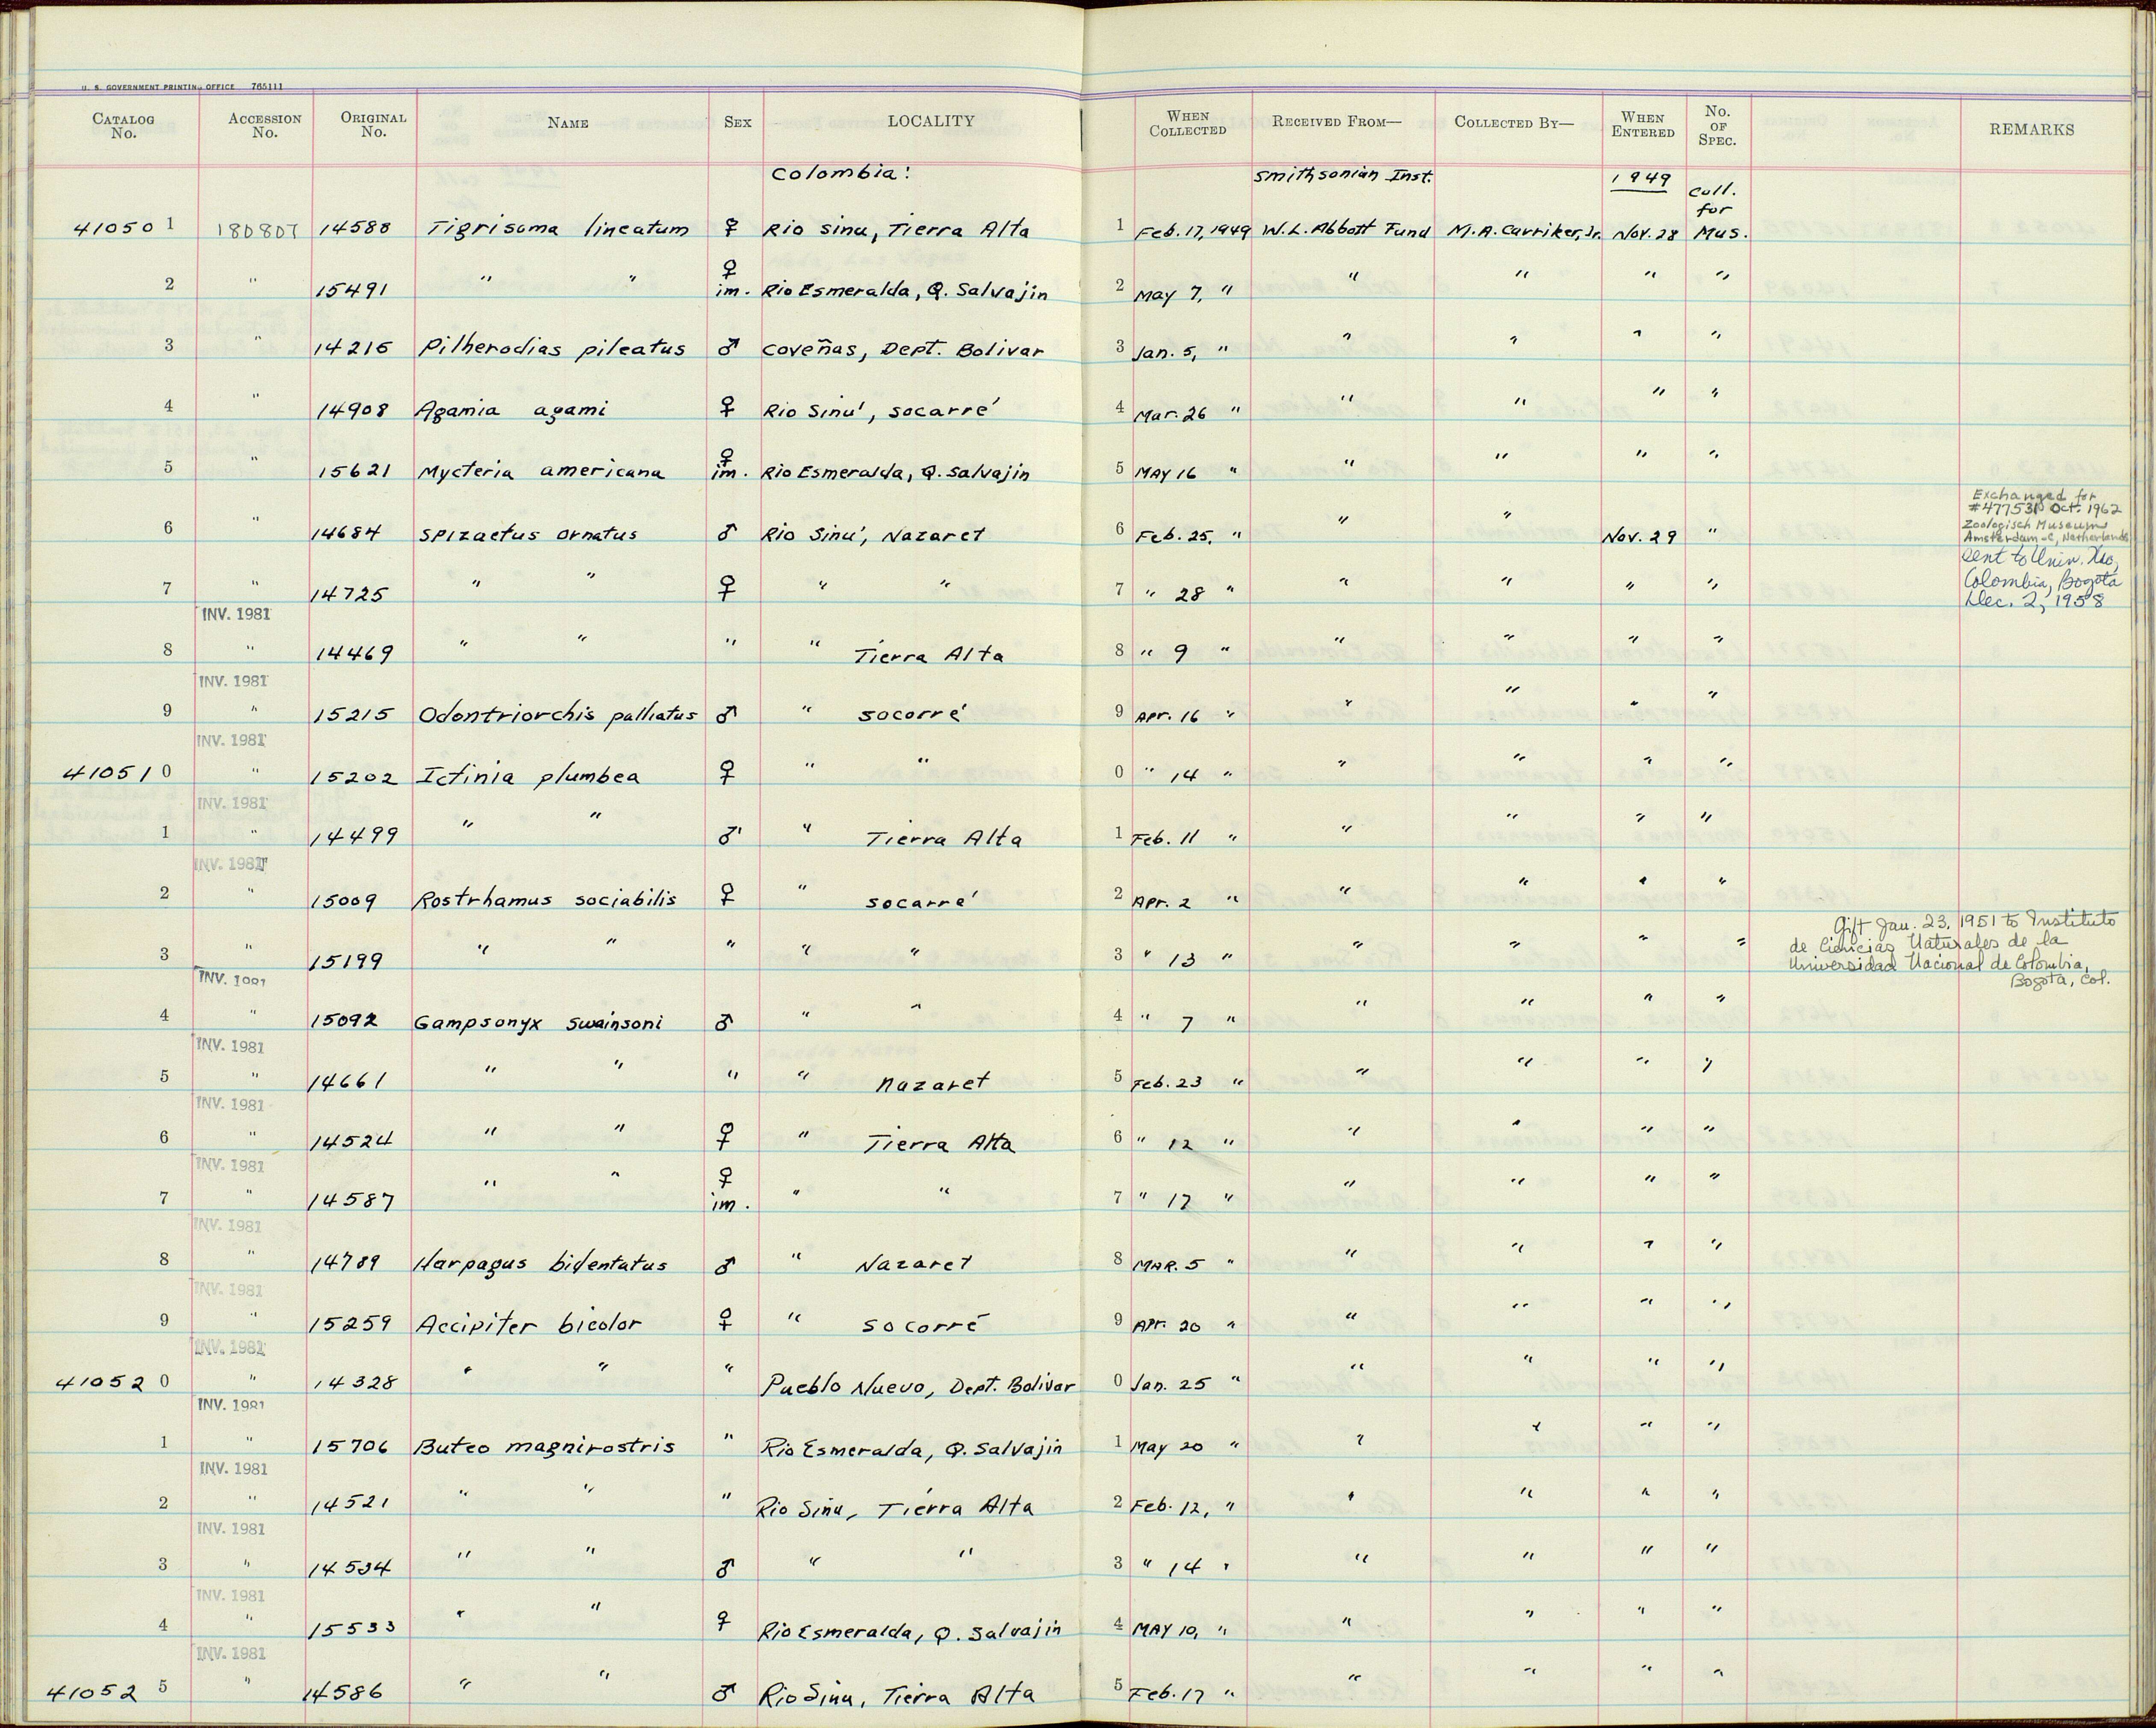 U. S. GOVERNMENT PRINTING OFFICE 765111
CATALOG No. ACCESSION No. ORIGINAL No. NAME SEX LOCALITY WHEN COLLECTED RECEIVED FROM— COLLECTED BY— WHEN ENTERED No. OF SPEC. REMARKS
Colombia: Smithsonian Inst. 1949 Coll. for
41050 1 180807 14588 Tigrisoma lineatum ♀ Rio Sinu, Tierra Alta 1 Feb. 17, 1949 W. L. Abbott Fund M. A. Carriker, Jr. Nov. 28 Mus.
2 " 15491 " " ♀ im. Rio Esmeralda, Q. Salvajin 2 May 7, " " " " "
3 " 14215 Pilherodias pileatus ♂ Coveñas, Dept. Bolivar 3 Jan. 5, " " " " "
4 " 14908 Agamia agami ♀ Rio Sinú, Socarré 4 Mar. 26 " " " " "
5 " 15621 Mycteria americana ♀ im. Rio Esmeralda, Q. Salvajin 5 MAY 16 " " " " "
6 " 14684 Spizaetus ornatus ♂ Rio Sinú, Nazaret 6 Feb. 25, " " " Nov. 29 " Exchanged for
Oct. 1962
Zoologisch Museum
Amsterdam-C, Netherlands
7 " 14725 " " ♀ " " 7 " 28 " " " " " Sent to Univ. Nac.
Colombia, Bogotá
Dec. 2, 1958
INV. 1981
8 " 14469 " " " " Tierra Alta 8 " 9 " " " " "
INV. 1981
9 " 15215 Odontriorchis palliatus ♂ " Socorré 9 Apr. 16 " " " " "
INV. 1981
41051 0 " 15202 Ictinia plumbea ♀ " " 0 " 14 " " " " "
INV. 1981
1 " 14499 " " ♂ " Tierra Alta 1 Feb. 11 " " " " "
INV. 1981
2 " 15009 Rostrhamus sociabilis ♀ " Socarré 2 Apr. 2 " " " " "
3 " 15199 " " " " " 3 " 13 " " " " " Gift Jan. 23, 1951 to Instituto
de Ciencias Naturales de la
Universidad Nacional de Colombia,
Bogota, Col.
INV. 1981
4 " 15092 Gampsonyx swainsoni ♂ " " 4 " 7 " " " " "
INV. 1981
5 " 14661 " " " " Nazaret 5 Feb. 23 " " " " "
INV. 1981
6 " 14524 " " ♀ " Tierra Alta 6 " 12 " " " " "
INV. 1981
7 " 14587 " " ♀ im. " " 7 " 17 " " " " "
INV. 1981
8 " 14789 Harpagus bidentatus ♂ " Nazaret 8 MAR. 5 " " " " "
INV. 1981
9 " 15259 Accipiter bicolor ♀ " Socorré 9 Apr. 20 " " " " "
INV. 1981
41052 0 " 14328 " " " Pueblo Nuevo, Dept. Bolivar 0 Jan. 25 " " " " "
INV. 1981
1 " 15706 Buteo magnirostris " Rio Esmeralda, Q. Salvajin 1 May 20 " " " " "
INV. 1981
2 " 14521 " " " Rio Sinu, Tierra Alta 2 Feb. 12, " " " " "
INV. 1981
3 " 14534 " " ♂ " " 3 " 14 " " " " "
INV. 1981
4 " 15533 " " ♀ Rio Esmeralda, Q. Salvajin 4 MAY 10, " " " " "
INV. 1981
41052 5 " 14586 " " ♂ Rio Sinu, Tierra Alta 5 Feb. 17 " " " " "